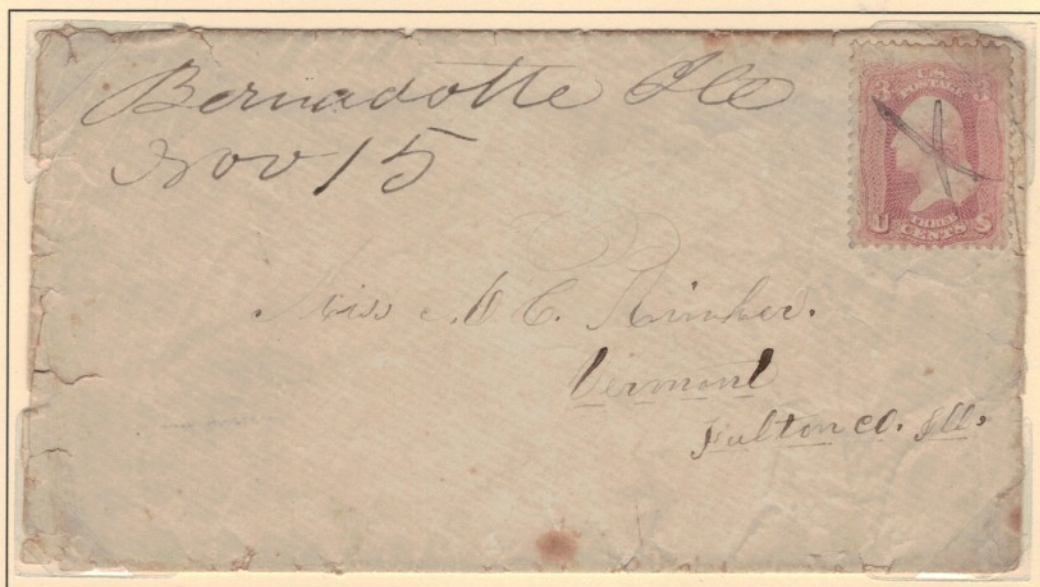 Bernadotte Ills
Nov 15
3 U.S. 3
POSTAGE
THREE
U CENTS S
Miss M C. Rinker.
Vermont
Fulton co. Ill.